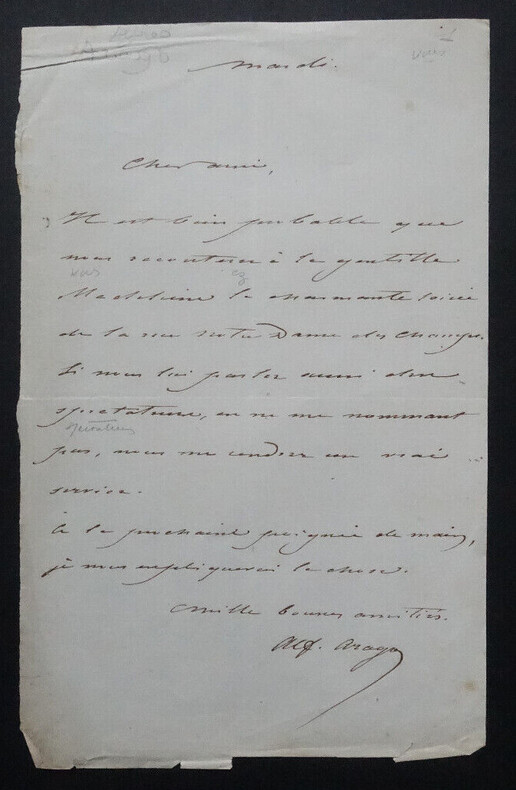 Alfred
Arago
Mardi.
Cher ami,
Il est bien probable que
vous raconterez à la gentille
Madeleine la charmante soirée
de la rue Notre Dame des Champs.
Si vous lui parlez aussi des
spectateurs, en ne me nommant
pas, vous me rendrez un vrai
service.
à la prochaine poignée de main,
je vous expliquerai la chose.
Mille bonnes amitiés.
Alf. Arago